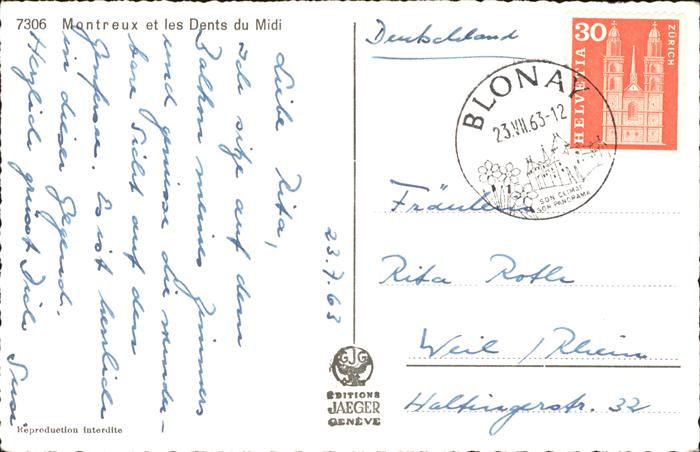 7306 Montreux et les Dents du Midi
23.7.63
Liebe Rita,
ich sitze auf dem
Balkon meines Zimmers
und geniesse die wunder-
bare Sicht auf den
Genfersee. Es ist herrlich
in dieser Gegend.
Herzlich grüsst Dich Susi.
Reproduction interdite
GJG
EDITIONS
JAEGER
GENÈVE
Deutschland
BLONAY
23.VII.63-12
SON CLIMAT
SON PANORAMA
30
HELVETIA
ZÜRICH
Fräulein
Rita Roth
Weil / Rhein
Haltingerstr. 32